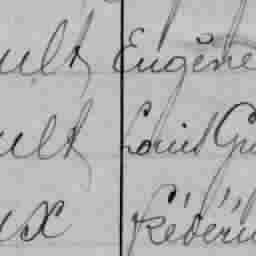 ult Eugène
ult Louis Gu
ux Fréderic